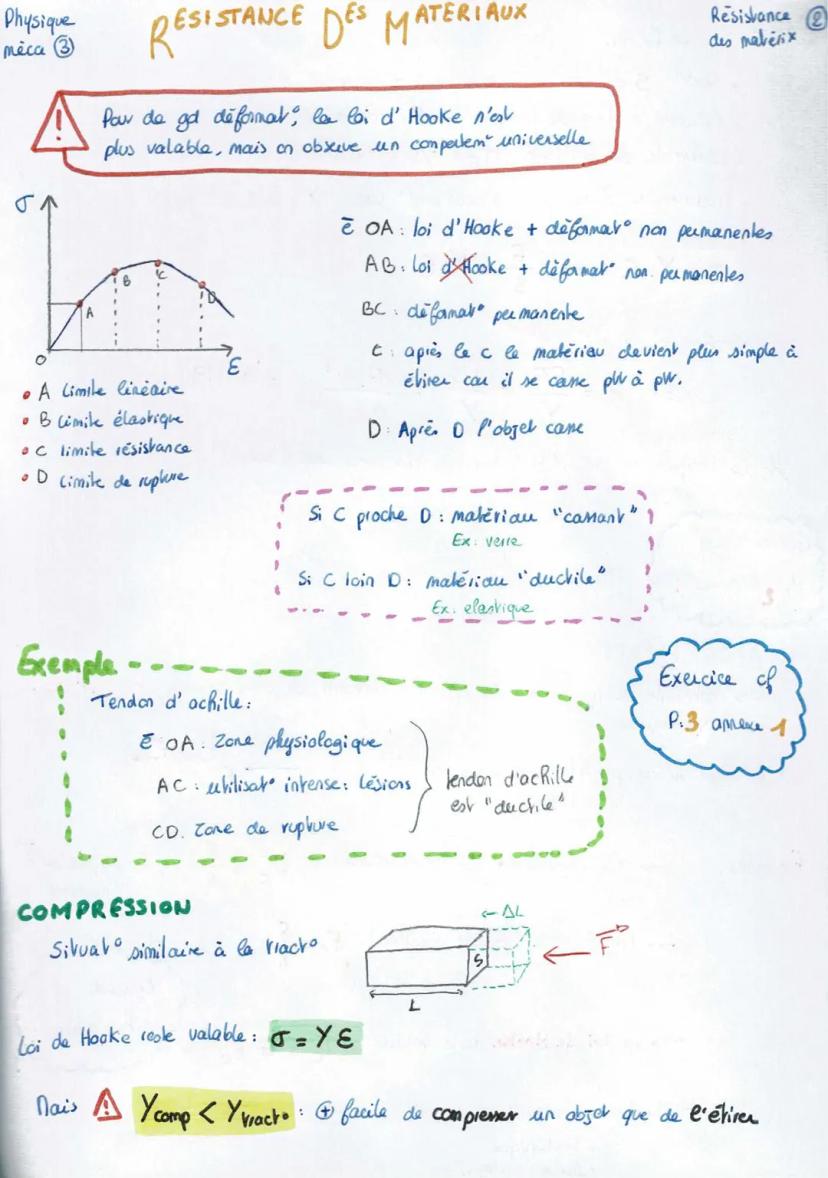 Physique
méca ③
RESISTANCE DES MATERIAUX
Résistance ②
des matérix
Pour de gd déformat°, la loi d'Hooke n'est
plus valable, mais on observe un comportemt universelle
σ
A
B
C
D
O
ε
• A Limite linéaire
• B Limite élastique
• C limite résistance
• D Limite de rupture
ē OA : loi d'Hooke + déformat° non permanentes
AB : Loi d'Hooke + déformat° non permanentes
BC : déformat° permanente
C : après le c le matériau devient plus simple à
étirer car il se casse pt à pt.
D : Après D l'objet casse
Si C proche D : matériau "cassant"
Ex : verre
Si C loin D : matériau "ductile"
Ex : elastique
Exemple
Tendon d'achille :
ē OA : Zone physiologique
AC : utilisat° intense : Lésions
CD. Zone de rupture
tendon d'achille
est "ductile"
Exercice cf
P.3 annexe 1
COMPRESSION
Situat° similaire à la tract°
← ΔL
S
L
F
Loi de Hooke reste valable : σ = Y ε
Mais ⚠ Ycomp < Ytract° : ⊕ facile de compresser un objet que de l'étirer